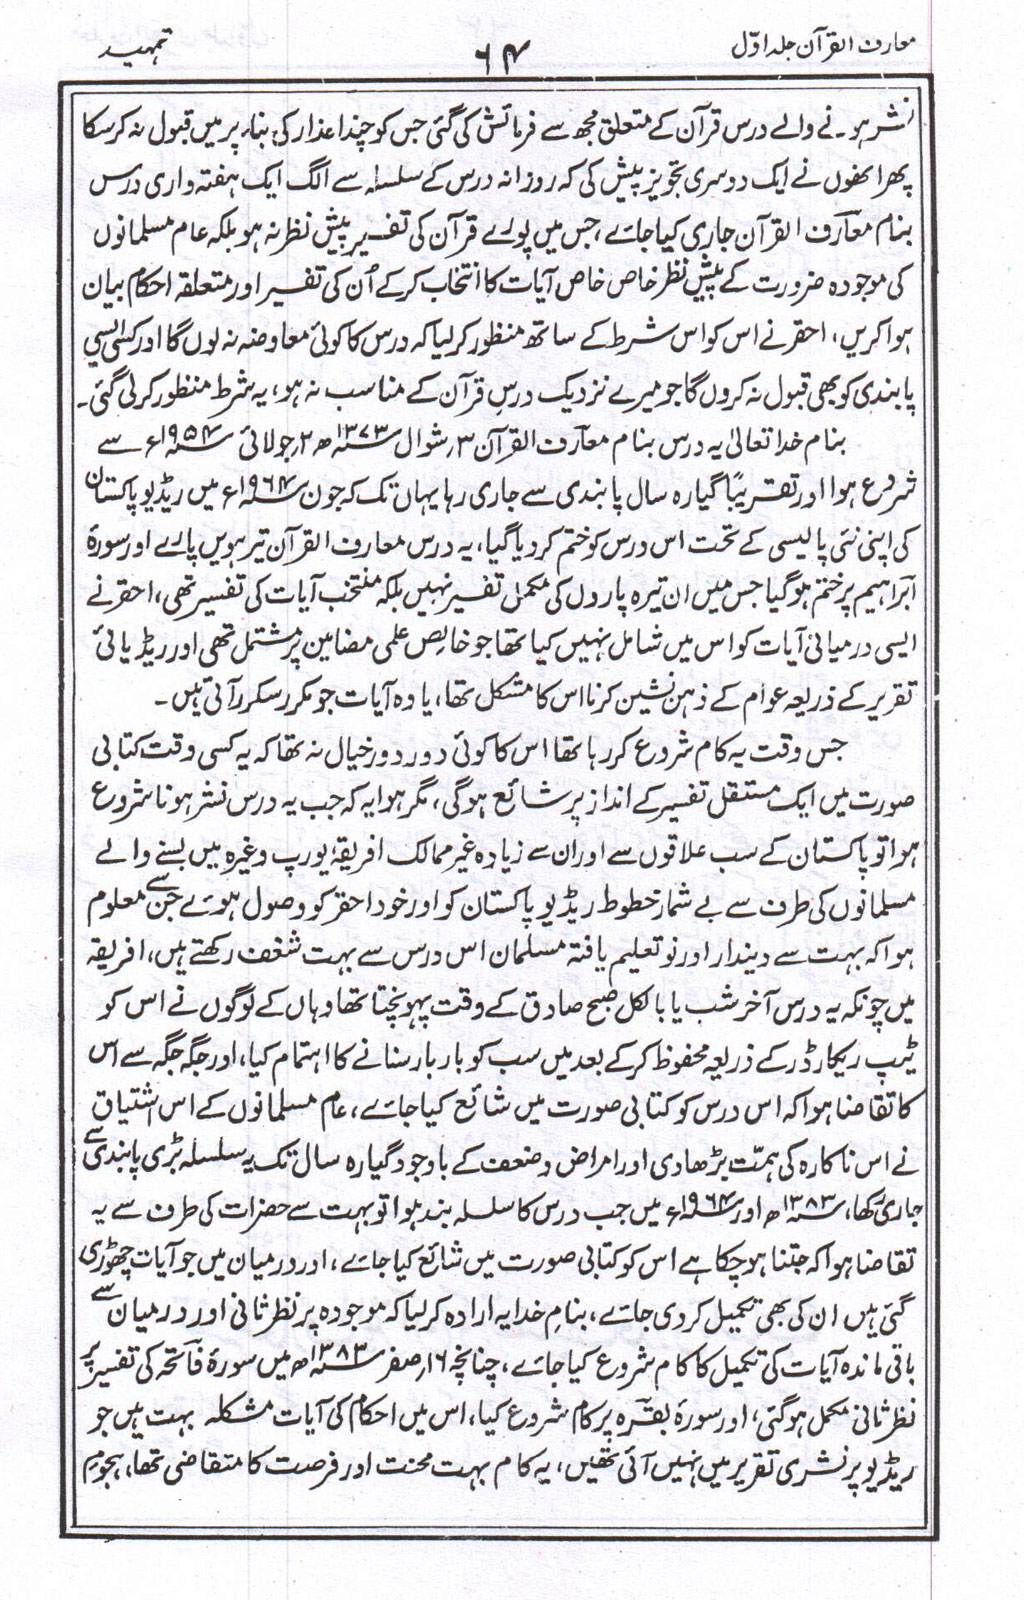 معارف القرآن جلد اوّل
۶۴
تمہید
نشر ہونے والے درس قرآن کے متعلق مجھ سے فرمائش کی گئی جس کو چند اعذار کی بناء پر میں قبول نہ کر سکا
پھر انھوں نے ایک دوسری تجویز پیش کی کہ روزانہ درس کے سلسلہ سے الگ ایک ہفتہ واری درس
بنام معارف القرآن جاری کیا جائے، جس میں پورے قرآن کی تفسیر پیش نظر نہ ہو بلکہ عام مسلمانوں
کی موجودہ ضرورت کے پیش نظر خاص خاص آیات کا انتخاب کر کے اُن کی تفسیر اور متعلقہ احکام بیان
ہوا کریں، احقر نے اس کو اس شرط کے ساتھ منظور کر لیا کہ درس کا کوئی معاوضہ نہ لوں گا اور کسی ایسی
پابندی کو بھی قبول نہ کروں گا جو میرے نزدیک درسِ قرآن کے مناسب نہ ہو، یہ شرط منظور کر لی گئی۔
بنام خدا تعالیٰ یہ درس بنام معارف القرآن ۳؍شوال سنہ۱۳۷۳ھ ۲؍جولائی سنہ۱۹۵۴ء سے
شروع ہوا اور تقریبًا گیارہ سال پابندی سے جاری رہا یہاں تک کہ جون سنہ۱۹۶۴ء میں ریڈیو پاکستان
کی اپنی نئی پالیسی کے تحت اس درس کو ختم کر دیا گیا، یہ درس معارف القرآن تیرہویں پارے اور سورۂ
ابراہیم پر ختم ہو گیا جس میں ان تیرہ پاروں کی مکمل تفسیر نہیں بلکہ منتخب آیات کی تفسیر تھی، احقر نے
ایسی درمیانی آیات کو اس میں شامل نہیں کیا تھا جو خالص علمی مضامین پر مشتمل تھی اور ریڈیائی
تقریر کے ذریعہ عوام کے ذہن نشین کرنا اس کا مشکل تھا، یا وہ آیات جو مکرر سکرر آتی ہیں۔
جس وقت یہ کام شروع کر رہا تھا اس کا کوئی دور دور خیال نہ تھا کہ یہ کسی وقت کتابی
صورت میں ایک مستقل تفسیر کے انداز پر شائع ہو گی، مگر ہوا یہ کہ جب یہ درس نشر ہونا شروع
ہوا تو پاکستان کے سب علاقوں سے اور ان سے زیادہ غیر ممالک افریقہ یورپ وغیرہ میں بسنے والے
مسلمانوں کی طرف سے بے شمار خطوط ریڈیو پاکستان کو اور خود احقر کو وصول ہوئے جن سے معلوم
ہوا کہ بہت سے دیندار اور نو تعلیم یافتہ مسلمان اس درس سے بہت شغف رکھتے ہیں، افریقہ
میں چونکہ یہ درس آخر شب یا بالکل صبح صادق کے وقت پہونچتا تھا وہاں کے لوگوں نے اس کو
ٹیپ ریکارڈر کے ذریعہ محفوظ کر کے بعد میں سب کو بار بار سنانے کا اہتمام کیا، اور جگہ جگہ سے اس
کا تقاضا ہوا کہ اس درس کو کتابی صورت میں شائع کیا جائے، عام مسلمانوں کے اس اشتیاق
نے اس ناکارہ کی ہمّت بڑھا دی اور امراض و ضعف کے باوجود گیارہ سال تک یہ سلسلہ بڑی پابندی سے
جاری رکھا، سنہ۱۳۸۳ھ اور سنہ۱۹۶۴ء میں جب درس کا سلسلہ بند ہوا تو بہت سے حضرات کی طرف سے یہ
تقاضا ہوا کہ جتنا ہو چکا ہے اس کو کتابی صورت میں شائع کیا جائے، اور درمیان میں جو آیات چھوڑی
گئی ہیں ان کی بھی تکمیل کر دی جائے، بنامِ خدا یہ ارادہ کر لیا کہ موجودہ پر نظر ثانی اور درمیان سے
باقی ماندہ آیات کی تکمیل کا کام شروع کیا جائے، چنانچہ ۱۶؍صفر سنہ۱۳۸۳ھ میں سورۂ فاتحہ کی تفسیر پر
نظر ثانی مکمل ہو گئی، اور سورۂ بقرہ پر کام شروع کیا، اس میں احکام کی آیات مشکلہ بہت ہیں جو
ریڈیو پر نشری تقریر میں نہیں آئی تھیں، یہ کام بہت محنت اور فرصت کا متقاضی تھا، ہجومِ